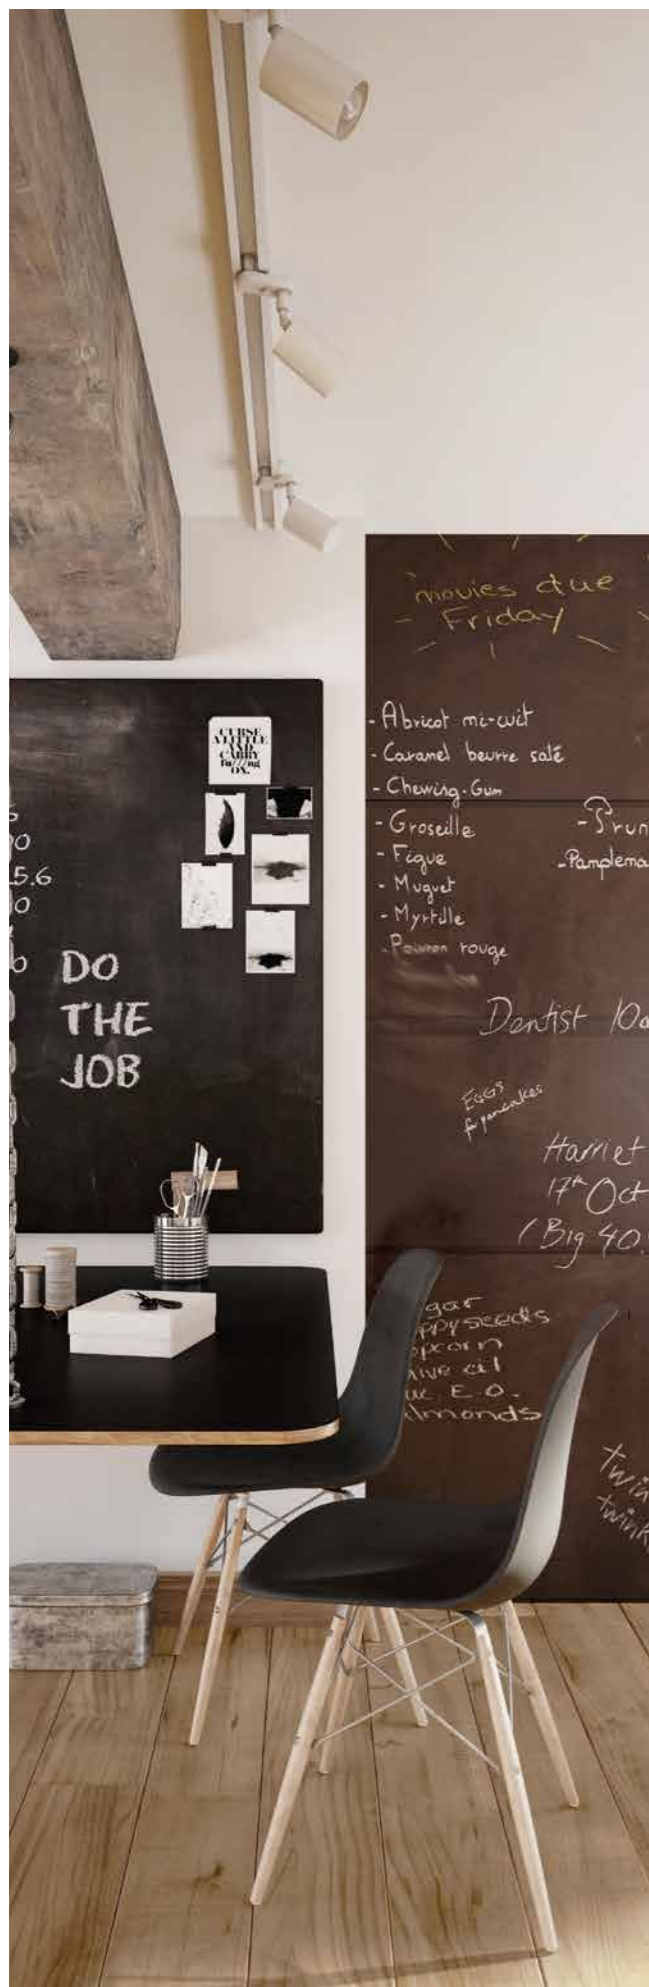 CURSE
A LITTLE
AND
CARRY
fu///ng
ON.
5.6
DO
THE
JOB
movies due
Friday
- Abricot mi-cuit
- Caramel beurre salé
- Chewing-Gum
- Groseille
- Figue
- Muguet
- Myrtille
- Poivron rouge
- Prun
- Pamplema
Dentist 10a
EGGS
for pancakes
Harriet
17th Oct
(Big 40
gar
ppyseeds
opcorn
live oil
E.O.
lmonds
Twin
twink